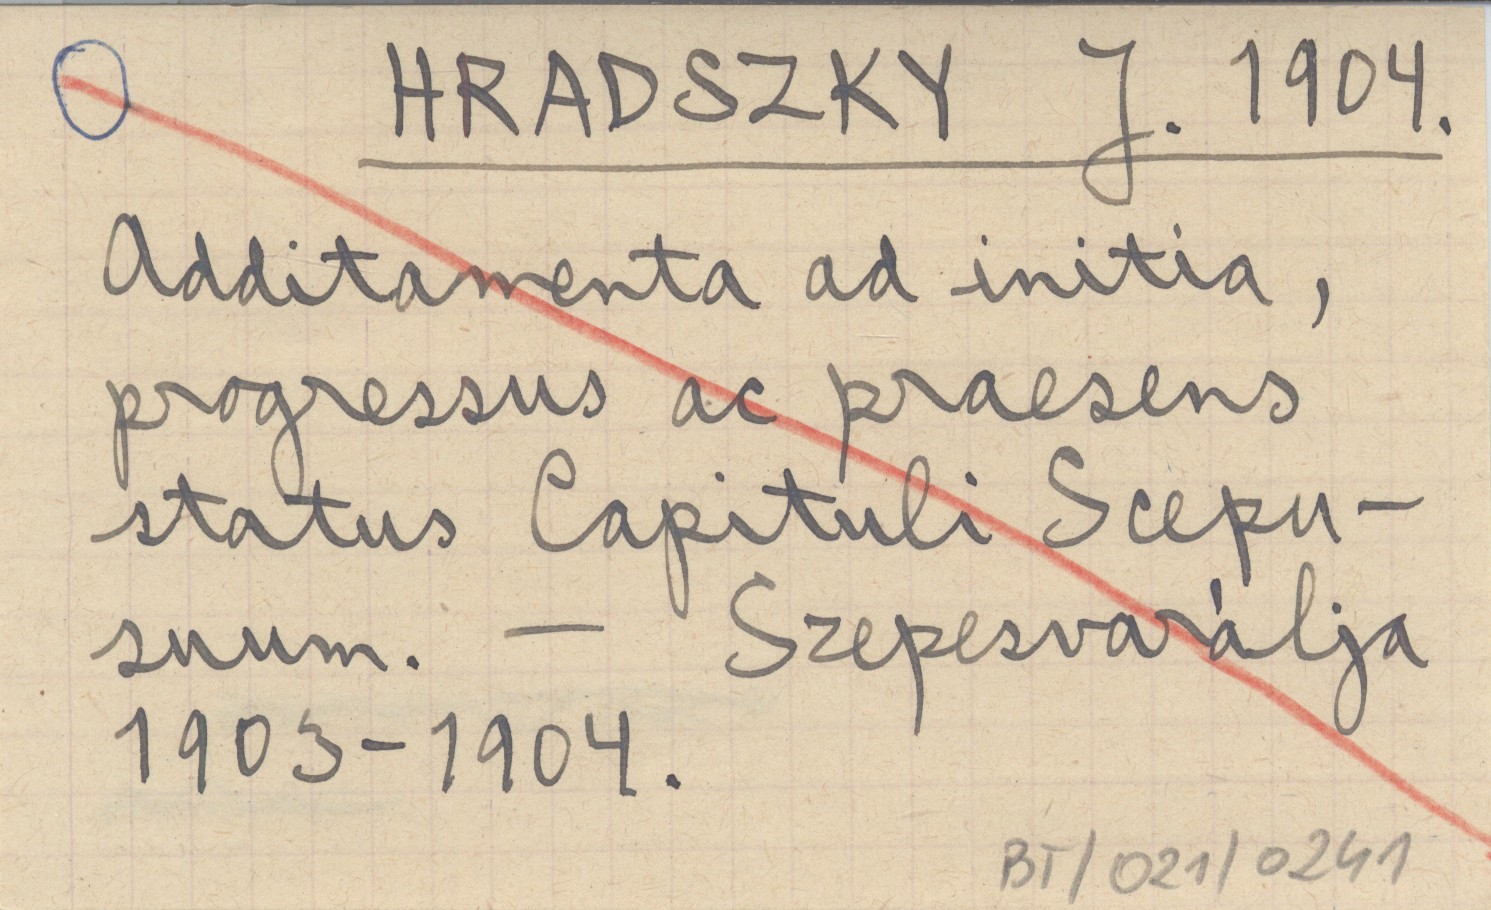 HRADSZKY J. 1904.
Additamenta ad initia,
progressus ac praesens
status Capituli Scepu-
suum. — Szepesvarálja
1903-1904.
BT/021/0241